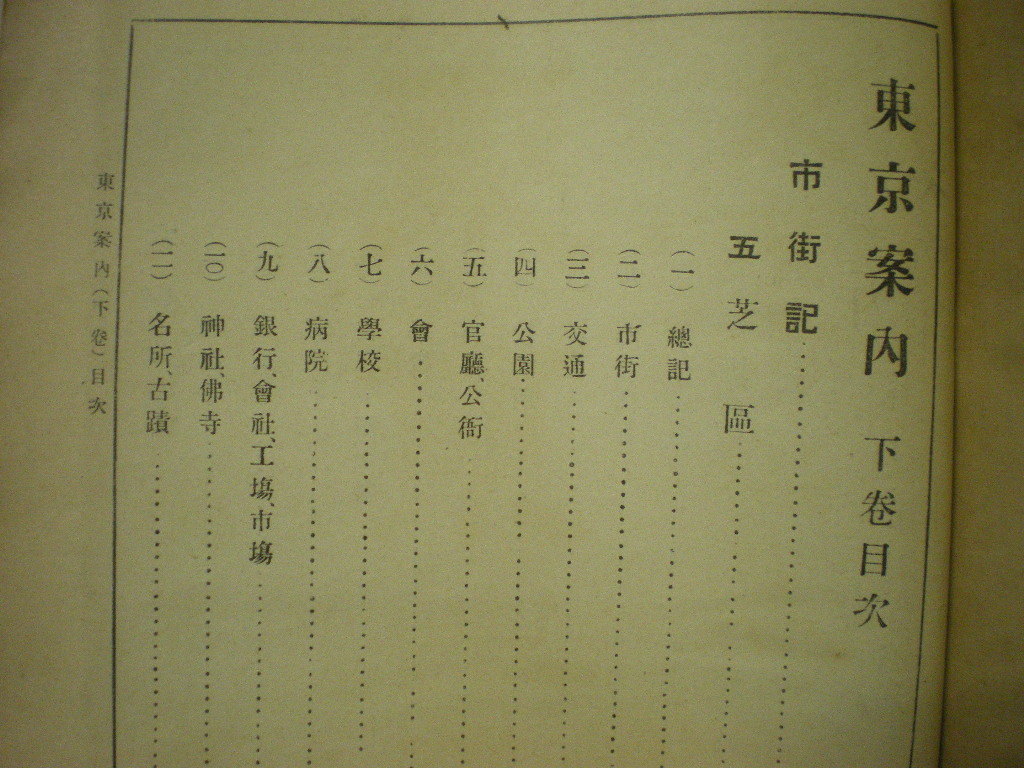 東京案內 下卷目次
市街記
五 芝區
(一) 總記
(二) 市街
(三) 交通
(四) 公園
(五) 官廳、公衙
(六) 會
(七) 學校
(八) 病院
(九) 銀行、會社、工塲、市塲
(一〇) 神社、佛寺
(一一) 名所、古蹟
東京案內(下卷)目次